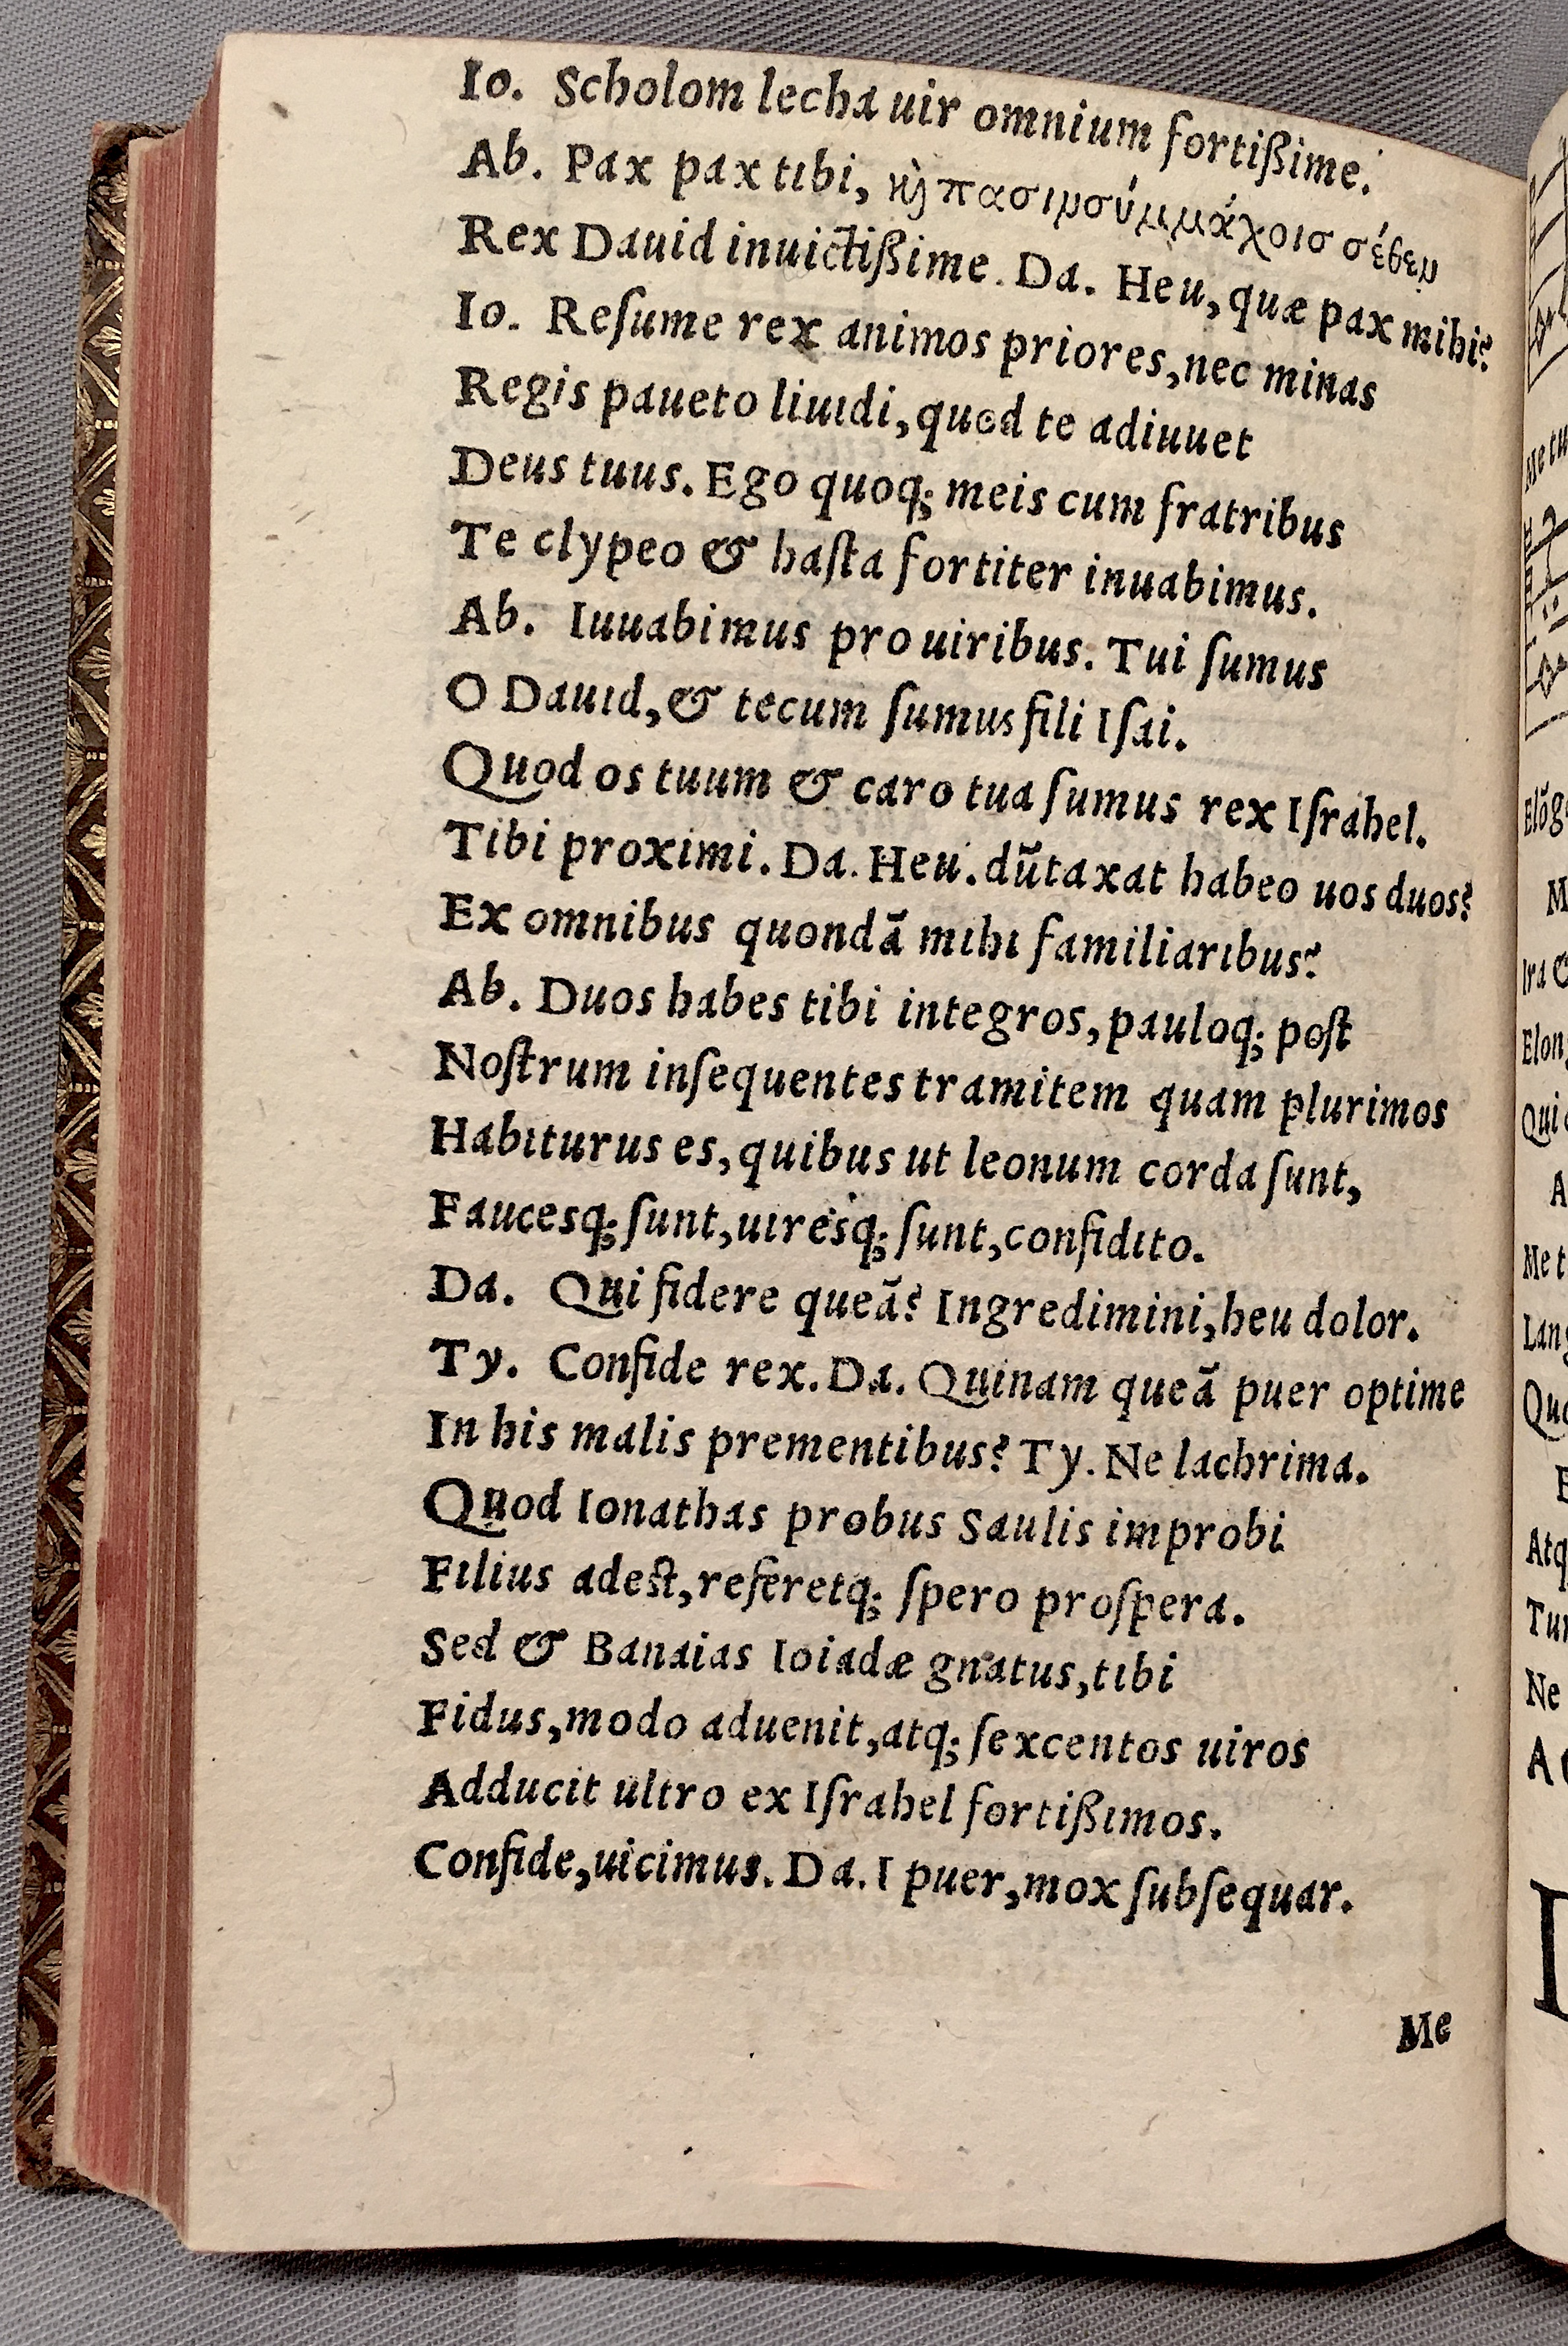 Io. Scholom lecha uir omnium fortißime.
Ab. Pax pax tibi, καὶ πασιν συμμάχοισ σέθεν
Rex Dauid inuictißime. Da. Heu, quæ pax mihi?
Io. Reſume rex animos priores, nec minas
Regis paueto liuidi, quod te adiuuet
Deus tuus. Ego quoq; meis cum fratribus
Te clypeo & haſta fortiter inuabimus.
Ab. Iuuabimus pro uiribus. Tui ſumus
O Dauid, & tecum ſumus fili Iſai.
Quod os tuum & caro tua ſumus rex Iſrahel.
Tibi proximi. Da. Heu. dūtaxat habeo uos duos?
Ex omnibus quondā mihi familiaribus?
Ab. Duos habes tibi integros, pauloq; poſt
Noſtrum inſequentes tramitem quam plurimos
Habiturus es, quibus ut leonum corda ſunt,
Faucesq; ſunt, uiresq; ſunt, confidito.
Da. Qui fidere queā? Ingredimini, heu dolor.
Ty. Confide rex. Da. Quinam queā puer optime
In his malis prementibus? Ty. Ne lachrima.
Quod Ionathas probus Saulis improbi
Filius adeſt, referetq; ſpero proſpera.
Sed & Banaias Ioiadæ gnatus, tibi
Fidus, modo aduenit, atq; ſexcentos uiros
Adducit ultro ex Iſrahel fortißimos.
Confide, uicimus. Da. I puer, mox ſubſequar.
Me
Me tu
Elōg
M
Ira &
Elon
Qui
A
Me t
Lang
Quo
E
Atq
Tur
Ne
A